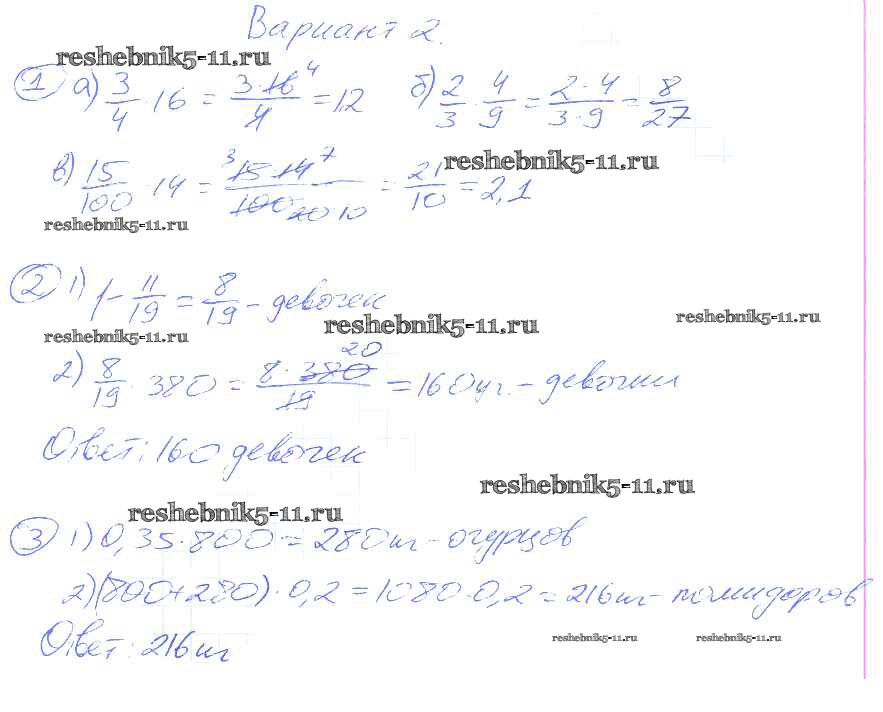 Вариант 2.
reshebnik5-11.ru
① а) 3/4 · 16 = 3·16⁴/4 = 12   б) 2/3 · 4/9 = 2·4/3·9 = 8/27
reshebnik5-11.ru
в) 15/100 · 14 = ³15·14⁷/100 20 10 = 21/10 = 2,1
reshebnik5-11.ru
② 1) 1 - 11/19 = 8/19 - девочек
reshebnik5-11.ru
reshebnik5-11.ru
reshebnik5-11.ru
2) 8/19 · 380 = 8·380 20/19 = 160 уч. - девочки
Ответ: 160 девочек
reshebnik5-11.ru
reshebnik5-11.ru
③ 1) 0,35·800 = 280 кг - огурцов
2) (800+280)·0,2 = 1080·0,2 = 216 кг - помидоров
Ответ: 216 кг
reshebnik5-11.ru
reshebnik5-11.ru